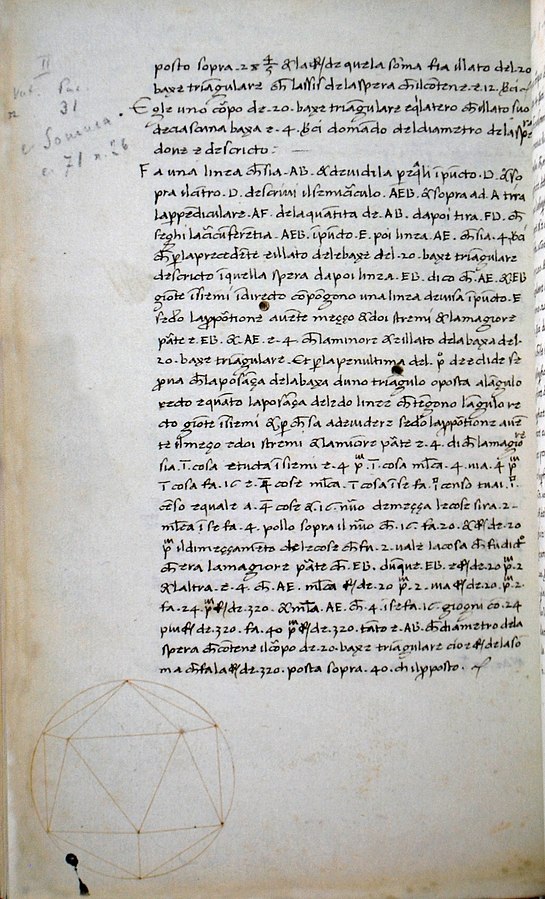 II
31
e Somma
c. 71 n. 26
posto sopra · 2 × 4/5 & la de quela soma fia illato del · 20
baxe triangulare che lassis dela spera che il contene · e · 12 ·
Egle uno corpo de · 20 · baxe triangulare eqlatero ch illato suo
de ciascuna baxa e · 4 · domando del diametro dela spe
 done e descricto :
Fa una linea ch sia · AB · & devidila per eqli i puncto · D · & so
pra il centro · D · descrivi il semicirculo · AEB · & sopra ad · A tira
la perpendiculare · AF · dela quantita de · AB · da poi tira · FD · ch
seghi la circunferentia · AEB · i puncto · E · poi linea · AE · ch sia · 4 ·
ch p la precedente e illato dele baxe del · 20 · baxe triangulare
descricto i quella spera da poi linea · EB · dico ch · AE · & EB
gionte i siemi i directo conpongono una linea devisa i puncto · E
secdo la proportione avente meçço & doi stremi & la magiore
parte e · EB · & AE · e · 4 · ch la minore & e illato dela baxa del ·
20 · baxe triangulare · Et p la penultima del · p° de euclide se
prova ch la posança dela baxa d uno triangulo oposta al angulo
recto e quato la posança dele do linee ch tegono l angulo re
cto gionte i siemi & p ch s a a devidere secdo la proportione aven
te il meçço e doi stremi & la minore parte e · 4 · di ch la magio
sia · 1 · cosa e tucta i siemi e · 4 p · 1 · cosa mlca · 4 · via · 4 p
1 cosa fa · 16 e · 4 cose mlca · 1 · cosa i se fa · 1 · censo tu ai · 1 ·
ceso equale a · 4 cose & · 16 · nuo demeçça le cose sira · 2 ·
mlca i se fa · 4 · pollo sopra il nuo ch · 16 · fa · 20 · & de · 20
p il dimeççameto de le cose ch fu · 2 · vale la cosa ch fu
ch era la magiore parte ch · EB · dunque · EB · e de · 20 p · 2
& l altra · e · 4 · ch · AE · mlca de · 20 p · 2 · via de · 20 · p · 2 ·
fa · 24 · p de · 320 · & mlca · AE · ch · 4 · i se fa · 16 · giogni co · 24
piu de · 320 · fa · 40 p de · 320 · tanto e · AB · ch diametro dela
spera ch contene il corpo de · 20 · baxe triangulare cioe de la so
ma ch fa la de · 320 · posta sopra · 40 · ch il proposto ·